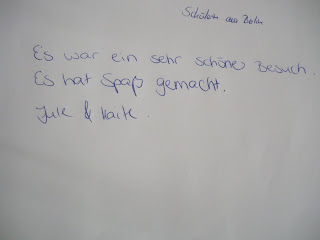 Schüler aus Berlin
Es war ein sehr schöner Besuch.
Es hat Spaß gemacht.
Jule & Maite.